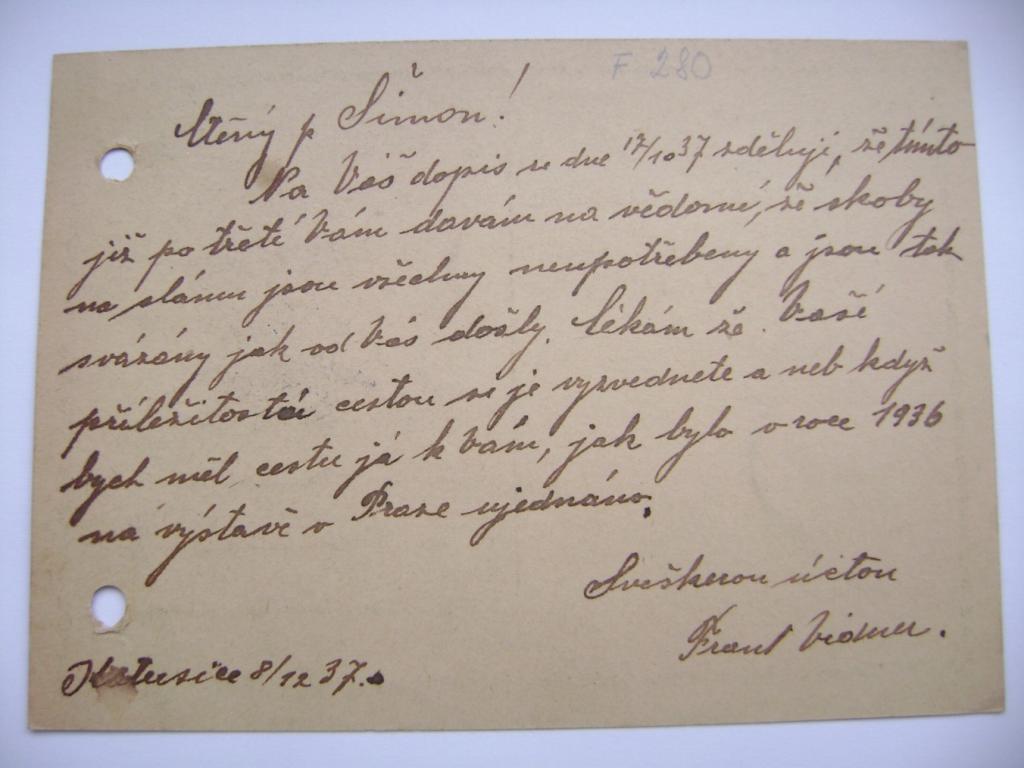 F 280
Ctěný p Šimon!
Na Váš dopis ze dne 17/10 37 sděluji, že tímto
již po třetí Vám davám na vědomí, že skoby
na slámu jsou všechny neupotřebeny a jsou tak
svázány jak od Vás došly. Čékám že Vaší
příležitostní cestou si je vyzvednete a neb když
bych měl cestu já k Vám, jak bylo v roce 1936
na výstavě v Praze ujednáno.
Sveškerou úctou
Frant Vidner.
Katusice 8/12 37.